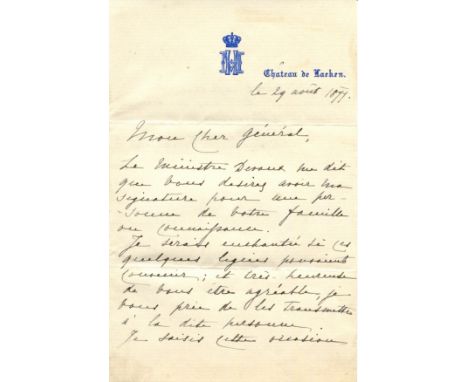 Château de Laeken.
le 29 août 1877.
Mon cher Général,
Le Ministre Devaux me dit
que vous désirez avoir ma
signature pour une per-
-sonne de votre famille
ou connaissance.
Je serais enchantée si ces
quelques lignes pouvaient
convenir; et très heureuse
de vous être agréable, je
vous prie de les transmettre
à la dite personne.
Je saisis cette occasion